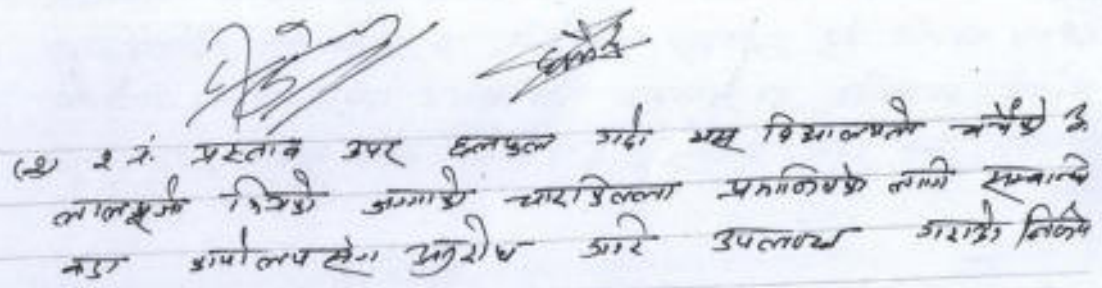 (२) २ नं. प्रस्ताव उपर छलफल गर्दा यस विद्यालयले
लालपूर्जा जग्गाको चारकिल्ला प्रमाणितको लागि सम्बन्धित
वडा कार्यालयसँग अनुरोध गरि उपलब्ध गराउने निर्णय